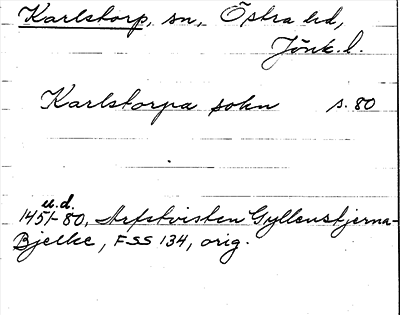 Karlstorp, sn, Östra hd,
Jönk. l.
Karlstorpa sokn s. 80
u. d.
1451-80, Arfstvisten Gyllenstjerna-
Bjelke, FSS 134, orig.